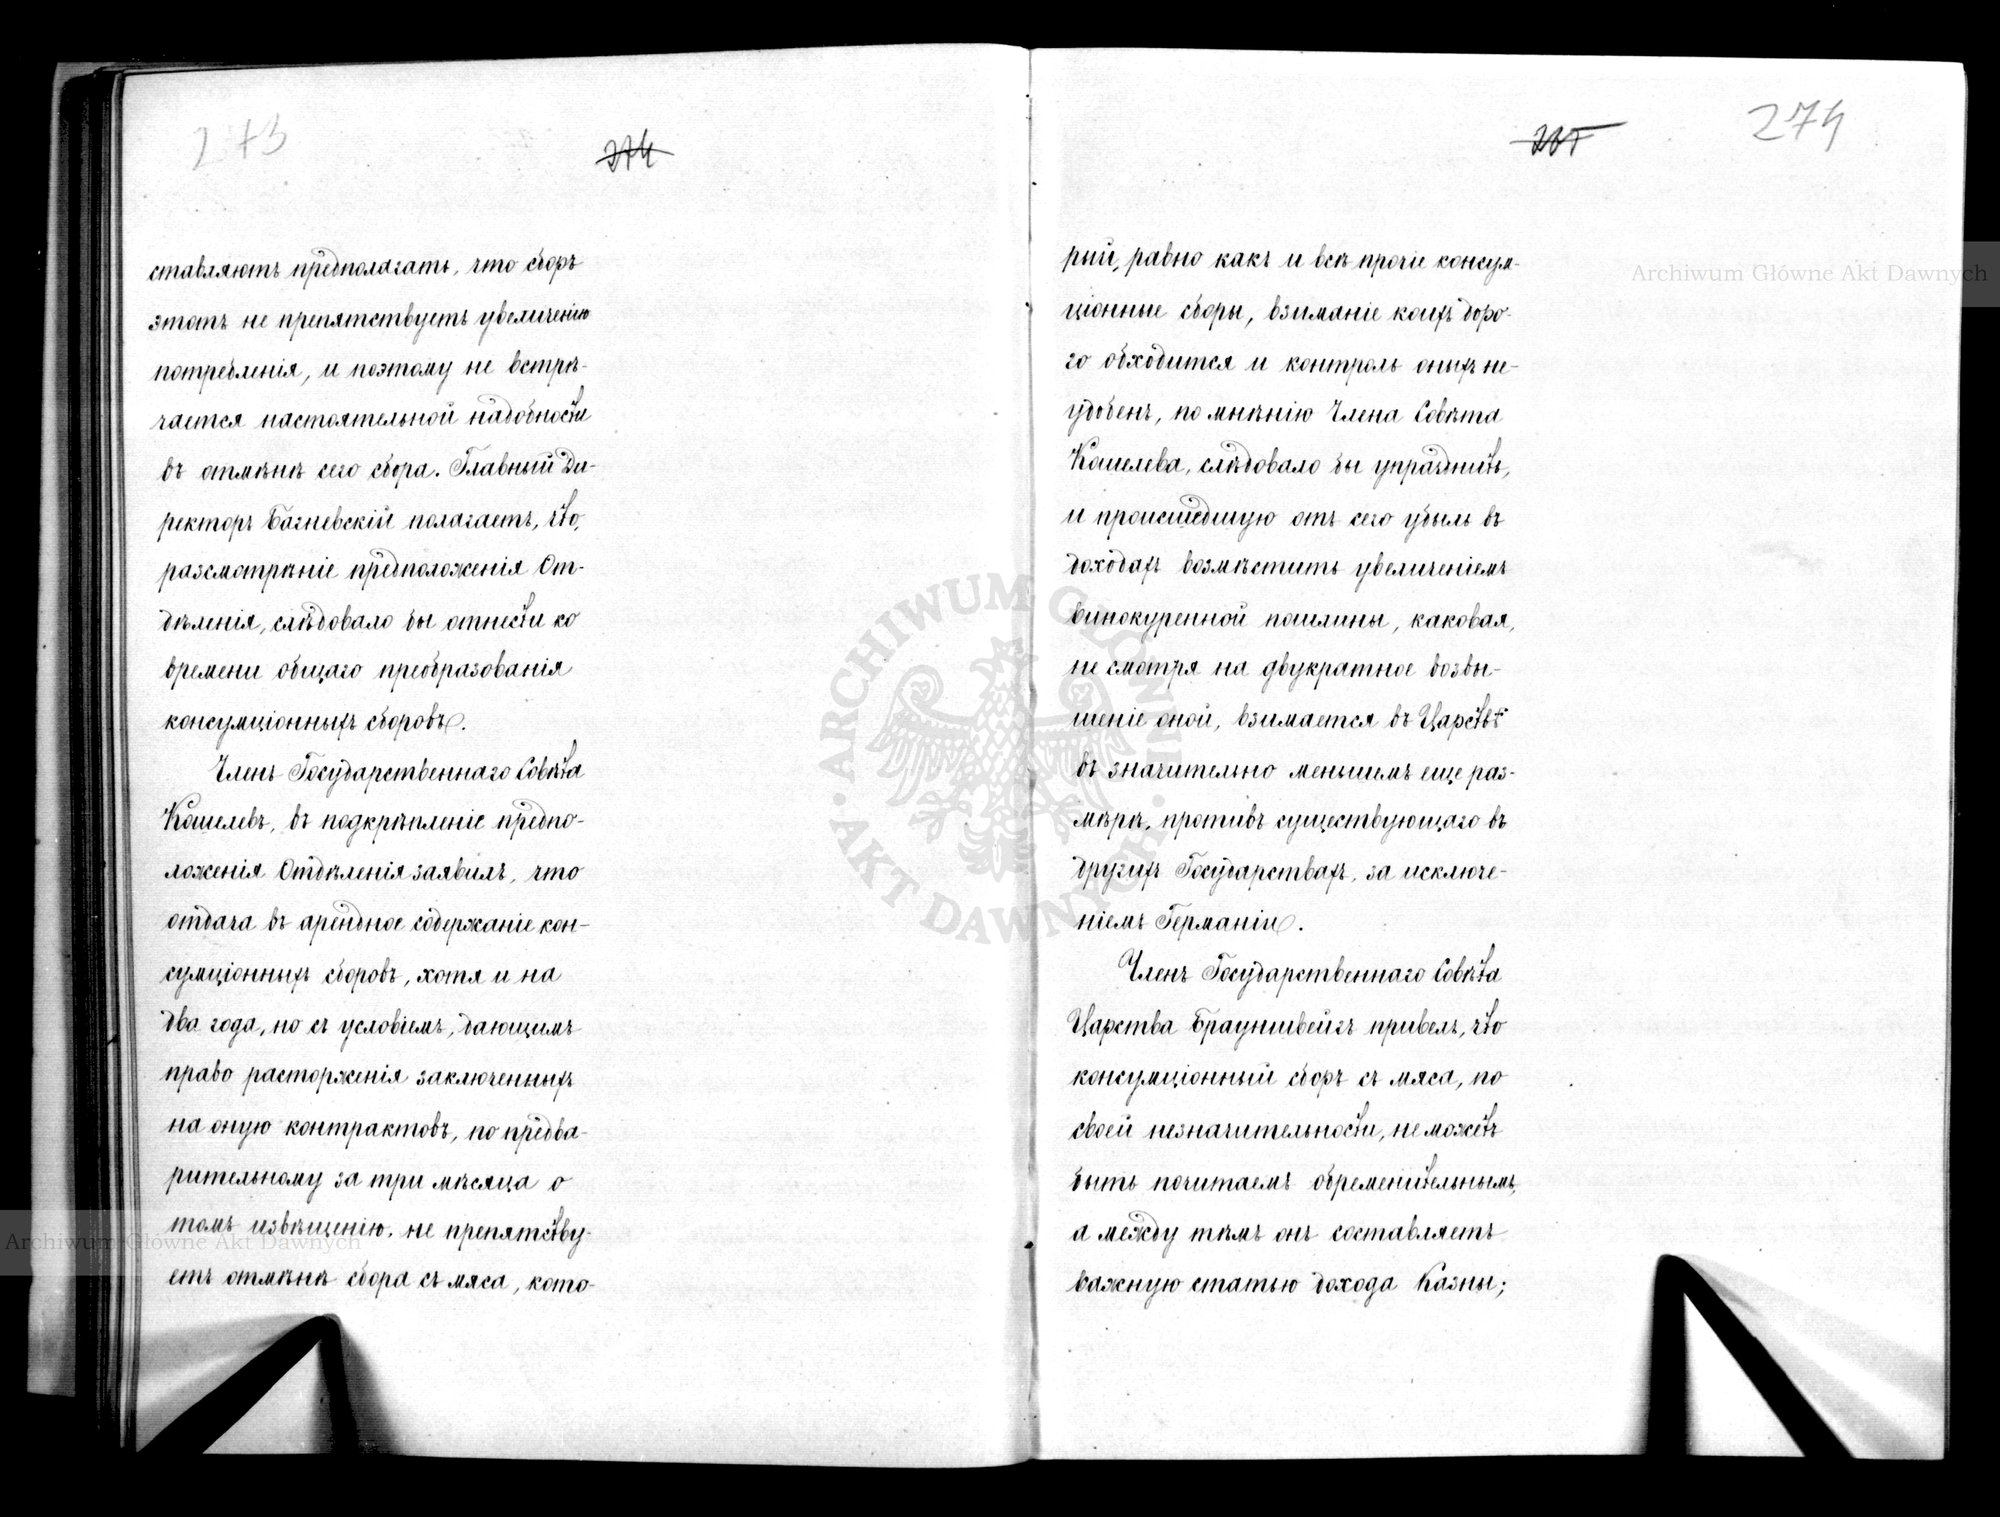 273
274
ставляютъ предполагать, что сборъ
этотъ не препятствуетъ увеличенію
потребленія, и поэтому не встрѣ-
чается настоятельной надобности
въ отмѣнѣ сего сбора. Главный Ди-
ректоръ Багневскій полагаетъ, что,
разсмотрѣніе предположенія От-
дѣленія, слѣдовало бы отнести ко
времени общаго преобразованія
консумціонныхъ сборовъ.
Членъ Государственнаго Совѣта
Кошелевъ, въ подкрѣпленіе предпо-
ложенія Отдѣленія заявилъ, что
отдача въ арендное содержаніе кон-
сумціонныхъ сборовъ, хотя и на
два года, но съ условіемъ, дающимъ
право расторженія заключенныхъ
на оную контрактовъ, по предва-
рительному за три мѣсяца о
томъ извѣщенію, не препятству-
етъ отмѣнѣ сбора съ мяса, кото-
274
рый, равно какъ и всѣ прочіе консум-
ціонные сборы, взиманіе коихъ доро-
го обходится и контроль оныхъ не-
удобенъ, по мнѣнію Члена Совѣта
Кошелева, слѣдовало бы упразднить,
и происшедшую отъ сего убыль въ
доходахъ возмѣстить увеличеніемъ
винокуренной пошлины, каковая,
не смотря на двукратное возвы-
шеніе оной, взимается въ Царствѣ
въ значительно меньшемъ еще раз-
мѣрѣ, противъ существующаго въ
другихъ Государствахъ, за исключе-
ніемъ Германіи.
Членъ Государственнаго Совѣта
Царства Брауншвейгъ привелъ, что
консумціонный сборъ съ мяса, по
своей незначительности, не можетъ
быть почитаемъ обременительнымъ,
а между тѣмъ онъ составляетъ
важную статью дохода Казны;
Archiwum Główne Akt Dawnych
Archiwum Główne Akt Dawnych
ARCHIWUM GŁÓWNE AKT DAWNYCH